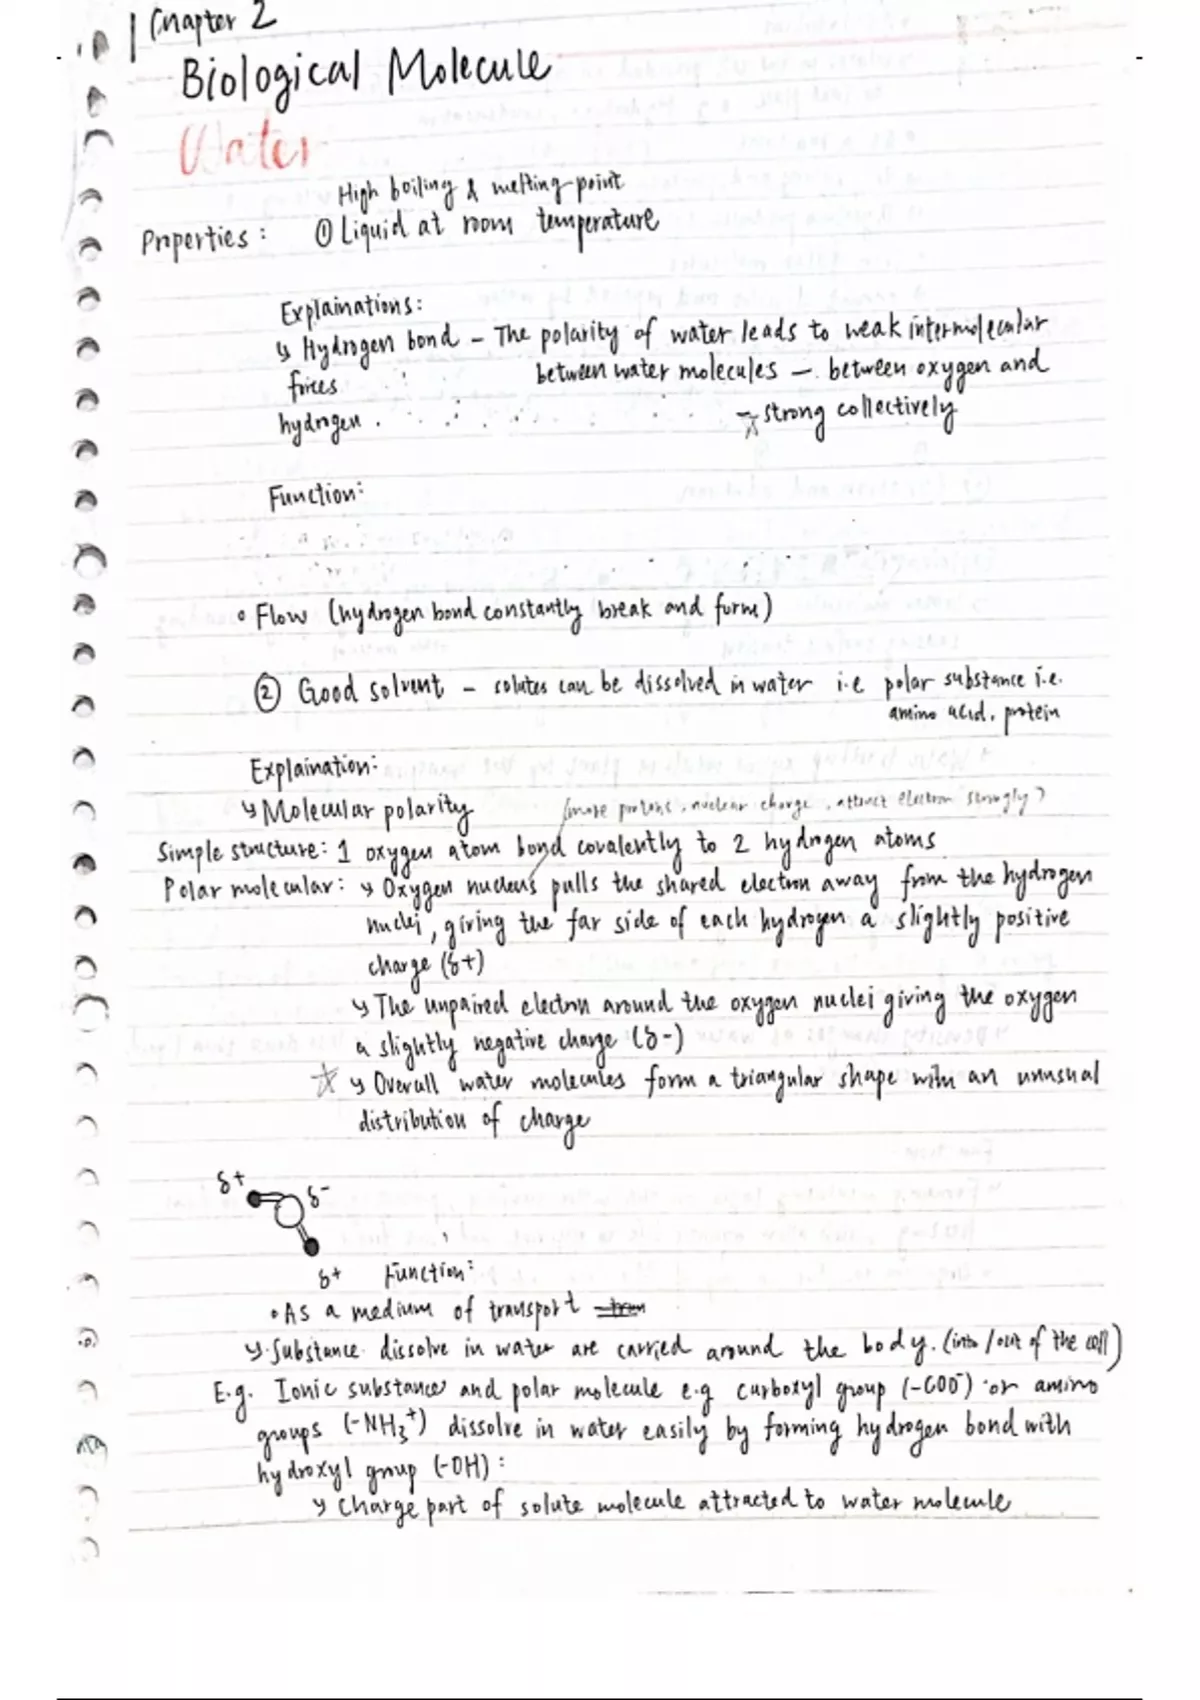 Chapter 2
Biological Molecule
Water
High boiling & melting point
Properties: ① Liquid at room temperature
Explainations:
↳ Hydrogen bond - The polarity of water leads to weak intermolecular
forces between water molecules - between oxygen and
hydrogen. → strong collectively
Function:
• Flow (hydrogen bond constantly break and form)
② Good solvent - solutes can be dissolved in water i.e polar substance i.e.
amino acid, protein
Explaination:
↳ Molecular polarity (more protons, nuclear charge, attract electron strongly)
Simple structure: 1 oxygen atom bond covalently to 2 hydrogen atoms
Polar molecular: ↳ Oxygen nucleus pulls the shared electron away from the hydrogen
nuclei, giving the far side of each hydrogen a slightly positive
charge (δ+)
↳ The unpaired electron around the oxygen nuclei giving the oxygen
a slightly negative charge (δ-)
☆ ↳ Overall water molecules form a triangular shape with an unusual
distribution of charge
δ+ δ-
δ+ Function:
• As a medium of transport
↳ Substance dissolve in water are carried around the body. (into/out of the cell)
E.g. Ionic substances and polar molecule e.g carboxyl group (-COO⁻) or amino
groups (-NH₃⁺) dissolve in water easily by forming hydrogen bond with
hydroxyl group (-OH):
↳ Charge part of solute molecule attracted to water molecule